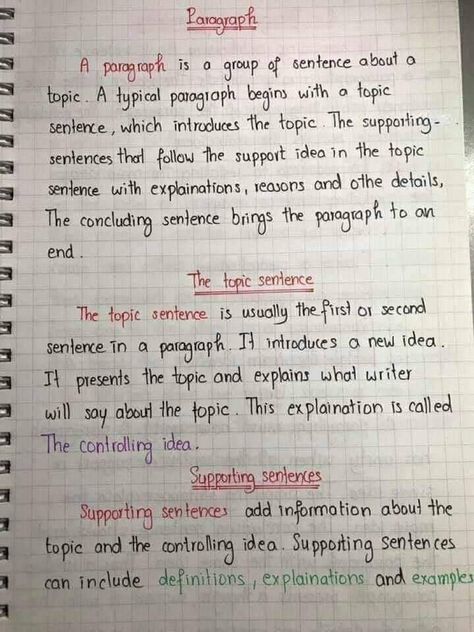 Paragraph
A paragraph is a group of sentence about a
topic. A typical paragraph begins with a topic
sentence, which introduces the topic. The supporting-
sentences that follow the support idea in the topic
sentence with explainations, reasons and othe details,
The concluding sentence brings the paragraph to an
end.
The topic sentence
The topic sentence is usually the first or second
sentence in a paragraph. It introduces a new idea.
It presents the topic and explains what writer
will say about the topic. This explaination is called
The controlling idea.
Supporting sentences
Supporting sentences add information about the
topic and the controlling idea. Supporting sentences
can include definitions, explainations and examples